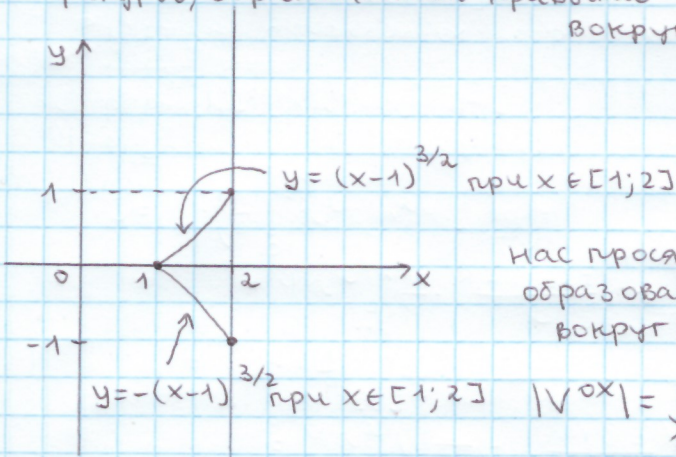 вокру
y
y = (x-1)^{3/2} при x ∈ [1; 2]
1
0 1 2 x
нас прося
образова
вокруг
-1
y = -(x-1)^{3/2} при x ∈ [1; 2]
|V^{OX}| =